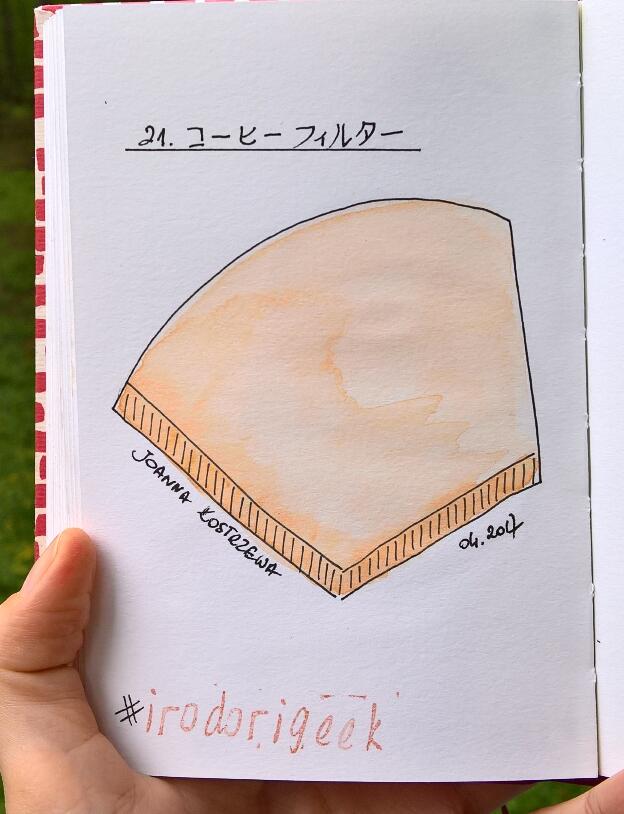 21. コーヒーフィルター
JOANNA KOSTRZEWA
04.2017
#irodorigeek